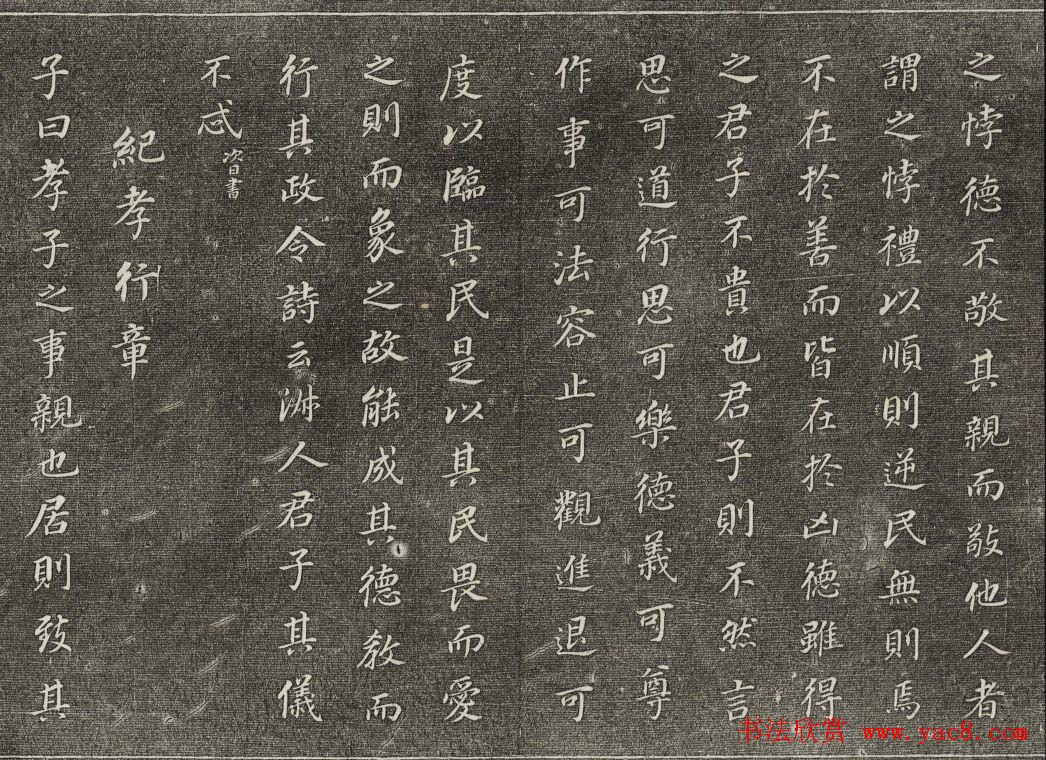 之悖德不敬其親而敬他人者
謂之悖禮以順則逆民無則焉
不在於善而皆在於凶德雖得
之君子不貴也君子則不然言
思可道行思可樂德義可尊
作事可法容止可觀進退可
度以臨其民是以其民畏而愛
之則而象之故能成其德教而
行其政令詩云淑人君子其儀
不忒 次日書
紀孝行章
子曰孝子之事親也居則致其
书法欣赏 www.yac8.com